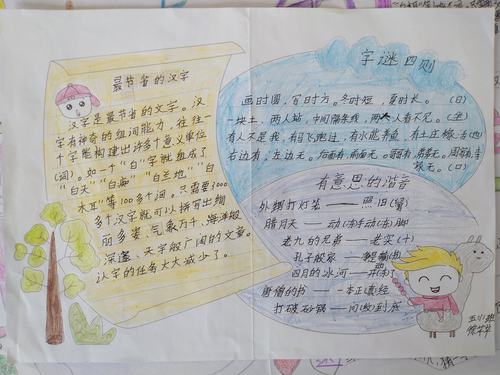 最节省的汉字
汉字是最节省的文字。汉
字有神奇的组词能力，往往一
个字能构建出许多个意义单位
(词)。如一个"白"字就组成了
"白天""白""白兰地""白
木耳"等100多个词。只需要3000
多个汉字就可以拼写出绚
丽多姿、气象万千、海洋般
深邃、天宇般广阔的文章。
认字的任务大大减少了。
字谜四则
画时圆，写时方。冬时短，夏时长。(日)
一块土，两人站，中间隔条线，两人看不见。(坐)
有人不是我，有马飞跑过，有水能养鱼，有土庄稼活(也)
右边有，左边无。后面有，前面无。
有意思的谐音
外甥打灯笼——照旧(舅)
腊月天——动(冻)手动(冻)脚
老九的兄弟——老实(十)
孔子搬家——
四月的冰河——开
唐僧的书——一本正(真)经
打破砂锅——问(纹)到底
五小班